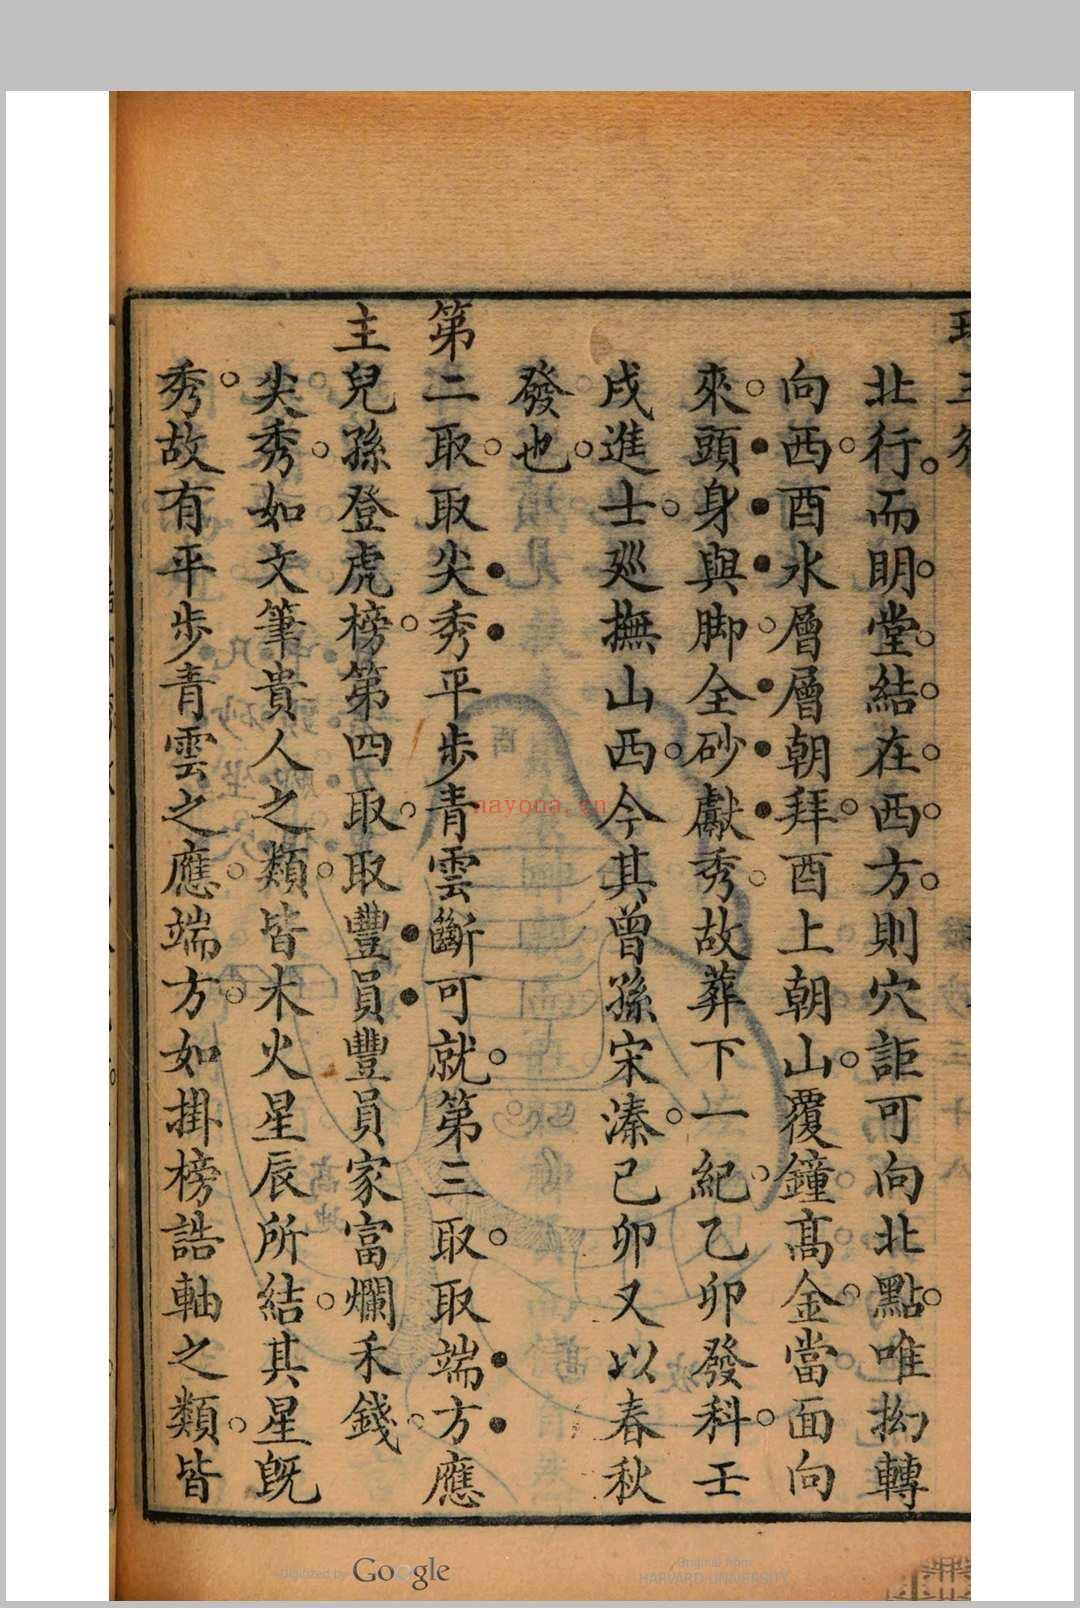 北行而明堂結在西方則穴詎可向北點唯拗轉
向西酉水層層朝拜酉上朝山覆鐘高金當面向
來頭身與脚全砂獻秀故葬下一紀乙卯發科壬
戌進士廵撫山西今其曾孫宋溱己卯又以春秋
發也
第二取取尖秀平步青雲斷可就第三取取端方應
主兒孫登虎榜第四取取豐員豐員家富爛禾錢
尖秀如文筆貴人之類皆木火星辰所結其星旣
秀故有平步青雲之應端方如掛榜誥軸之類皆
nayona.cn
Digitized by Google
Original from
HARVARD UNIVERSITY